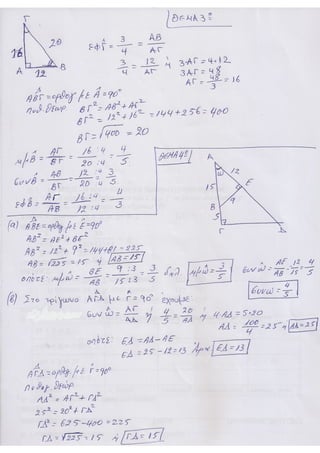 ΘΕΜΑ3ο:
Γ
16
20
Α
12
Β
εφΓ̂ = 3/4 = ΑΒ/ΑΓ
3/4 = 12/ΑΓ ή 3ΑΓ = 4·12
3ΑΓ = 48
ΑΓ = 48/3 = 16
ΑΒ̂Γ = ορθογ με Â = 90°
Πυθ. Θεωρ. ΒΓ² = ΑΒ² + ΑΓ²
ΒΓ² = 12² + 16² = 144 + 256 = 400
ΒΓ = √400 = 20
ημΒ̂ = ΑΓ/ΒΓ = 16:4/20:4 = 4/5
συνΒ̂ = ΑΒ/ΒΓ = 12:4/20:4 = 3/5
εφΒ̂ = ΑΓ/ΑΒ = 16:4/12:4 = 4/3
ΘΕΜΑ4ο
Α
ω
12
15
Ε
9
Β
5
Γ
Δ
(α) ΑΒ̂Ε = ορθογ με Ε̂ = 90°
ΑΒ² = ΑΕ² + ΒΕ²
ΑΒ² = 12² + 9² = 144 + 81 = 225
ΑΒ = √225 = 15 ή ΑΒ = 15
οπότε: ημω̂ = ΒΕ/ΑΒ = 9:3/15:3 = 3/5 δηλ. ημω̂ = 3/5
συνω̂ = ΑΕ/ΑΒ = 12/15 = 4/5
συνω̂ = 4/5
(β) Στο τρίγωνο ΑΓΔ με Γ̂ = 90° έχουμε
συνω̂ = ΑΓ/ΑΔ ή 4/5 = 20/ΑΔ ή 4·ΑΔ = 5·20
ΑΔ = 100/4 = 25 ή ΑΔ = 25
οπότε ΕΔ = ΑΔ - ΑΕ
ΕΔ = 25 - 12 = 13 Άρα ΕΔ = 13
ΑΓ̂Δ = ορθογ με Γ̂ = 90°
Πυθαγ. Θεωρ
ΑΔ² = ΑΓ² + ΓΔ²
25² = 20² + ΓΔ²
ΓΔ² = 625 - 400 = 225
ΓΔ = √225 = 15 ή ΓΔ = 15